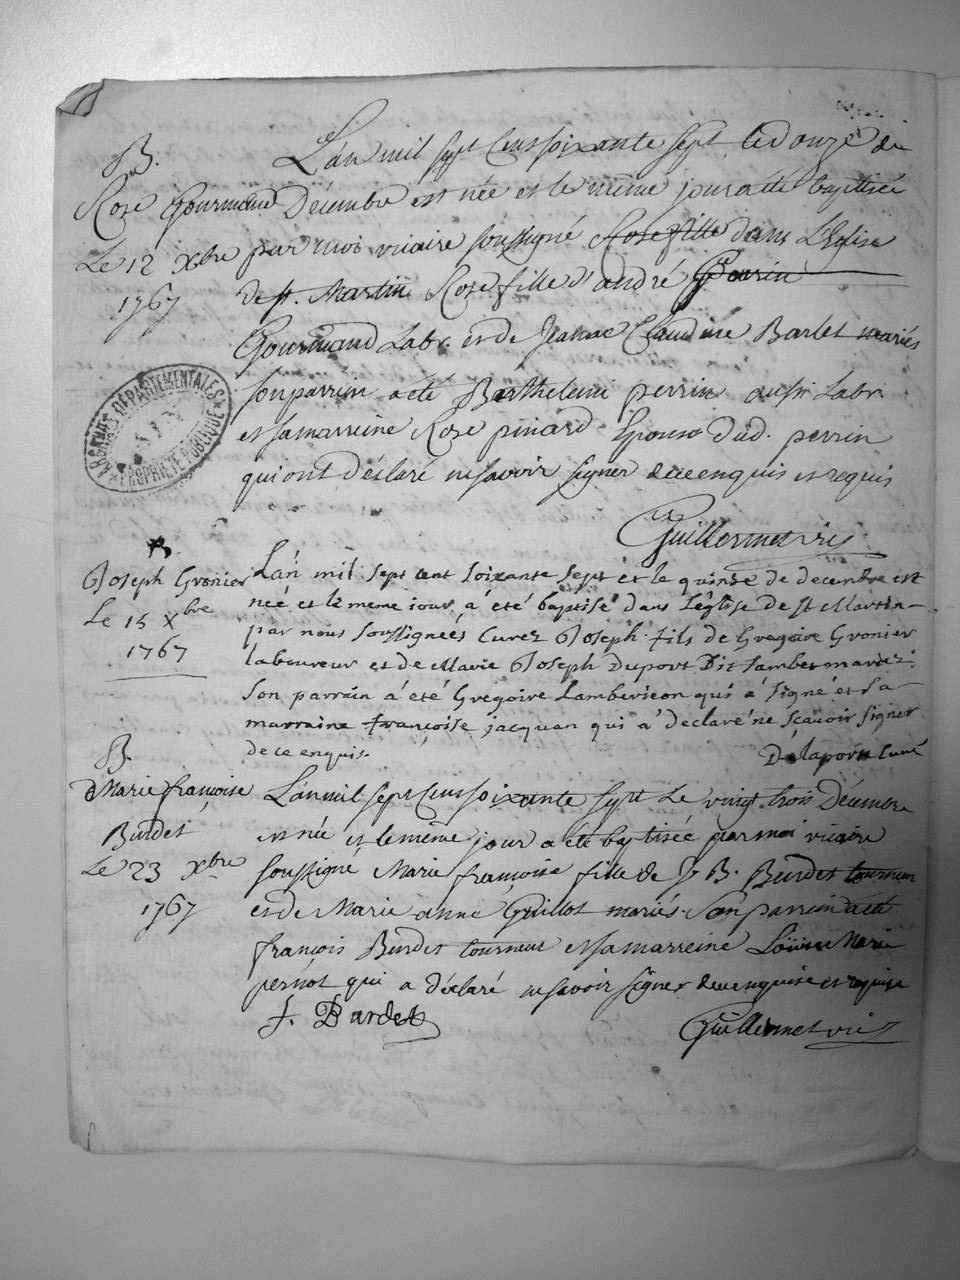 B.
Rose Gourmand
Le 12 Xbre
1767
L'an mil sept cens soixante sept le douze de
Décembre est née et le même jour a été baptisée
par moi vicaire soussigné Rose fille dans L'Eglise
de st. Martin Rose fille d'andré Perrin
Gourmand Labr. et de Jeanne Claudine Barlet mariés
son parrin a été Barthelemi perrin aussi Labr.
et sa marreine Rose pinard Epouse dud. perrin
qui ont déclaré ne savoir signer de ce enquis et requis
Guillermet vic
ARCHIVES DÉPARTEMENTALES
PROPRIÉTÉ PUBLIQUE
B
Joseph Gronier
Le 15 Xbre
1767
L'an mil sept cent soixante sept et le quinse de decembre est
née et le meme iour a été baptisé dans L'eglise de st Martin
par nous soussignées Curez Joseph fils de Gregoire Gronier
laboureur et de Marie Joseph Duport Dit Lambert mariez
Son parrain a été Gregoire Lamberieon qui a signé et sa
marraine françoise jacquan qui a declaré ne scavoir signer
de ce enquis.
Delaporte Curé
B.
Marie françoise
Burdet
Le 23 Xbre
1767
L'an mil sept cens soixante sept le vingt trois Décembre
est née et le même jour a été baptisée par moi vicaire
soussigné Marie françoise fille de J B. Burdet tourneur
et de Marie anne Guillot mariés. Son parrein a été
françois Burdet tourneur et sa marreine Loüise Marie
pernot qui a déclaré ne savoir signer de ce enquise et requise
f. Burdet
Guillermet vic